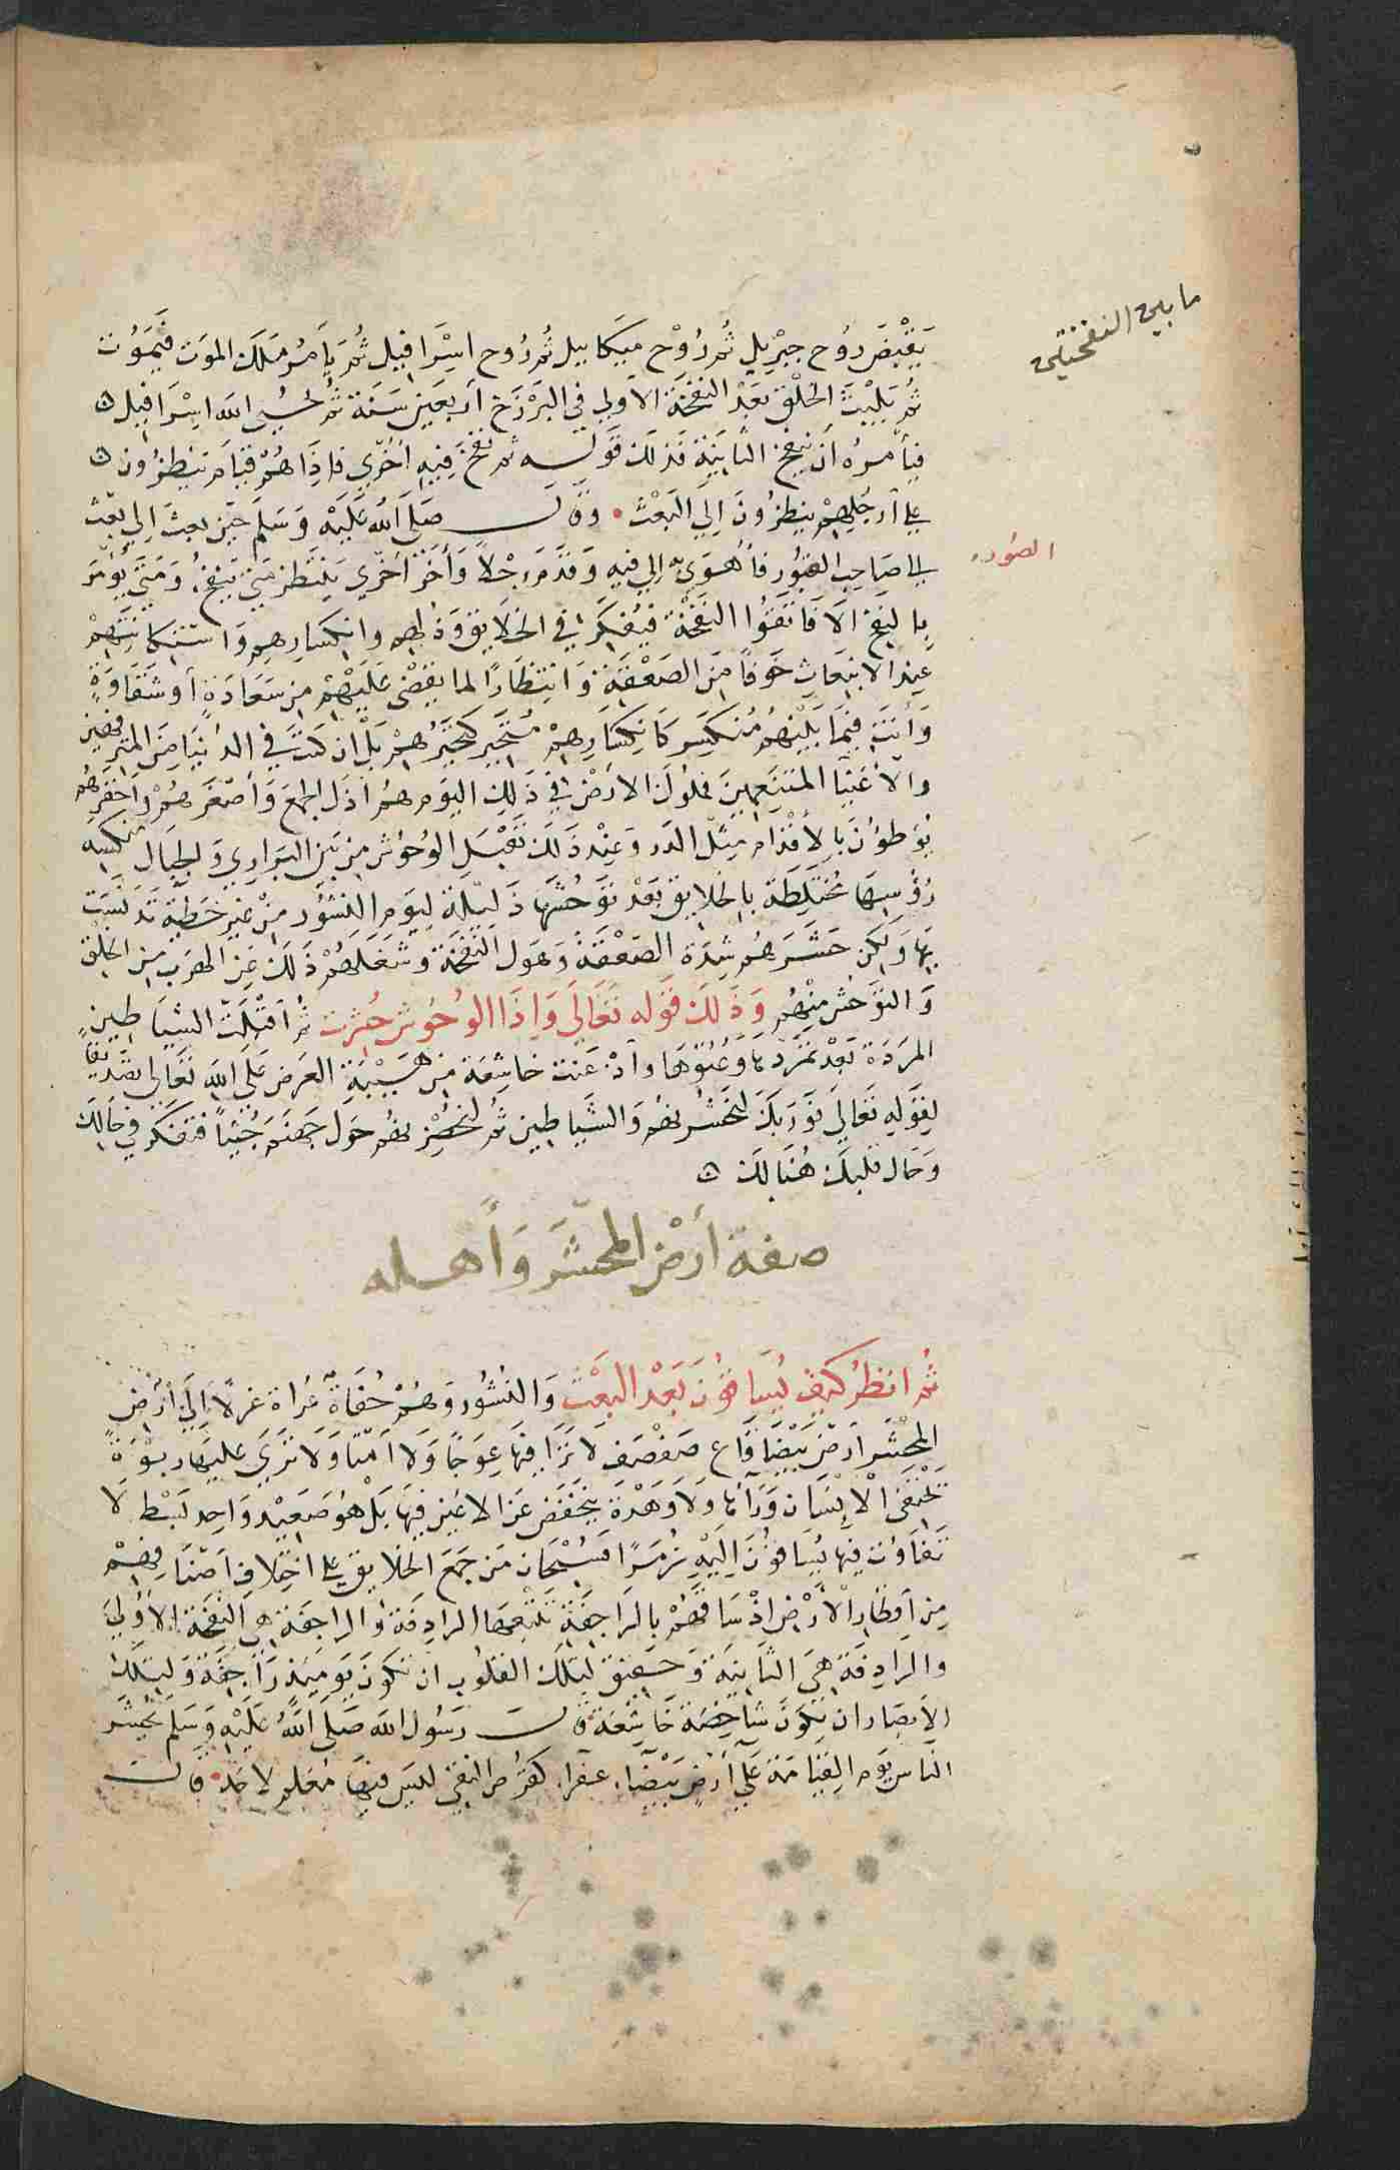 ما بين النفختين
يَقْبِضَ رُوح جبْرِيل ثُم رُوْح مِيكَاييل ثُم رُوح اسْرَافيل ثُم يَأمُر مَلَك الموَت فَيَمُوت
ثُم يَلْبَث الخلْق بَعْد النفْخَة الاَولي في البَرْزَخ اَربَعين سَنَة ثم يُحْيي الله اسْرَافيل ه
فيَأمرهُ اَن ينفخ الثانيَة فذلك قولـه ثم نفخ فيه اُخْرَي فاذَا هُمْ قيَام يَنظرُون ه
علي اَرجُلِهِمْ ينظرُونَ اِلي البَعْث • وقالـ صَلَى اَللهُ عَلَيْه وَسَلم حيْن بعثَ اِلي بَعَث
الي صَاحِب الصُّور فأَهْوَي به اِلي فيه وَقدَّمَ رِجْلاً وَأَخَّرَ اُخْرَي يَنْتَظر مَتَي يُؤمَر
الصُور
بالنفخ اَلاَ فَاتقُوا النفخَة فتفكَّر في الخلايق وَذُلهِم وانكِسَارِهِم وَاستكانتهِمْ
عِند الانبعَاث خَوفاً مِنَ الصَعْقَة وَانتظَارًا لما يقضَى عَلَيْهِمْ مِن سَعَادَةٍ أو شقَاوَةٍ
وَأنتَ فيمَا بَيْنهُم مُنكسِر كَانكِسَارِهِمْ مُتَحَيِّر كتحَيُّرهِمْ بَل ان كنتَ في الدُنيَا مِنَ المترفهين
والأغنيَا المتنَعِمِينَ فملُوك الارْضْ في ذَلِك اليَوم هُم اَذَل الجمعَ وَاَصْغَرهُمْ وَاحقرهُم
يُوطؤُنَ بالأقدَام مِثل الذَر وَعِنْد ذَلَك تقبل الوُحُوش مِن البَرَارِي وَالجبَال منكسه
رُؤُسهَا مُختَلِطَة بالخلايق بَعْد تَوَحُشهَا ذَلِيْلَة لِيَومِ النُشُور مِنْ غير خَطِيَّة تدَنَّسَت
بِهَا وَلكِن حَشَرَهُم شِدَة الصَعْقَة وَهَول النَفخة وشَغَلَهُمْ ذَلكَ عَن الهَرَب مِن الخلْق
وَالتوَحّش مِنْهُم وَذَلكَ قوله تَعَالَي وَاِذَا الوُحُوش حُشِرت ثم اَقْبَلَت الشيَاطِين
المرَدَة بَعْد تمَرّدهَا وَعُتوّهَا وأذعَنت خَاشِعَة مِن هَيْبَةِ العَرض عَلَى الله تعَالي تصديقًا
لِقَوْلِهِ تَعَالي فوَرَبكَ لنَحْشُرنهُم وَالشيَاطِين ثُم لنُحْضِرنهُم حَول جَهَنم جُثِيّاً فتفكر في حَالك
وَحَال قلبكَ هُنَالك ه
صفة أرْض المحْشَر وَأهله
ثُم انظرُ كيْف يُسَاقُونَ بَعْد البَعْث وَالنُشُور وَهُمْ حُفَاةٌ عُراة غرلاً إلي أَرْضِ
المحْشَر اَرض بَيْضَا قَاع صَفْصَف لاَ تَرَي فيهَا عِوَجًا وَلاَ اَمْتًا وَلاَ تَرَي عَليهَا رَبوَةً
يخْتفي الإنْسَان وَرَآءَهَا وَلاَ وَهْدَة ينخَفض عَن الاعْيُن فيهَا بَلْ هُو صَعِيد وَاحِد بَسْط لا
تَفَاوُت فيهَا يُسَاقونَ اِلَيْه زُمَرًا فَسُبْحَان مَن جَمَعَ الخلايق علي اختِلاف اَصْنَافِهِمْ
مِن أقطَار الأرْض اِذْ سَاقَهُمْ بالرَاجِفَة تَتْبعهَا الرَادِفَة وَالراجفة هِيَ النَفخة الاُولَي
والرادِفَة هِيَ الثَانيَة وَحَقيق لتلك القلُوب ان تكون يَومَئذ رَاجِفَة وَلِتلكَ
الأبصَار ان تكوَن شَاخِصَة خَاشِعَة قالـ رَسُول الله صَلى الله عَلَيْه وَسَلم يُحْشَر
الناس يَوم القيَامَة عَلَي أرْض بَيْضَآ، عفرآ، كقُرص النقي ليسَ فيهَا مَعْلم لاحَد • قالـ